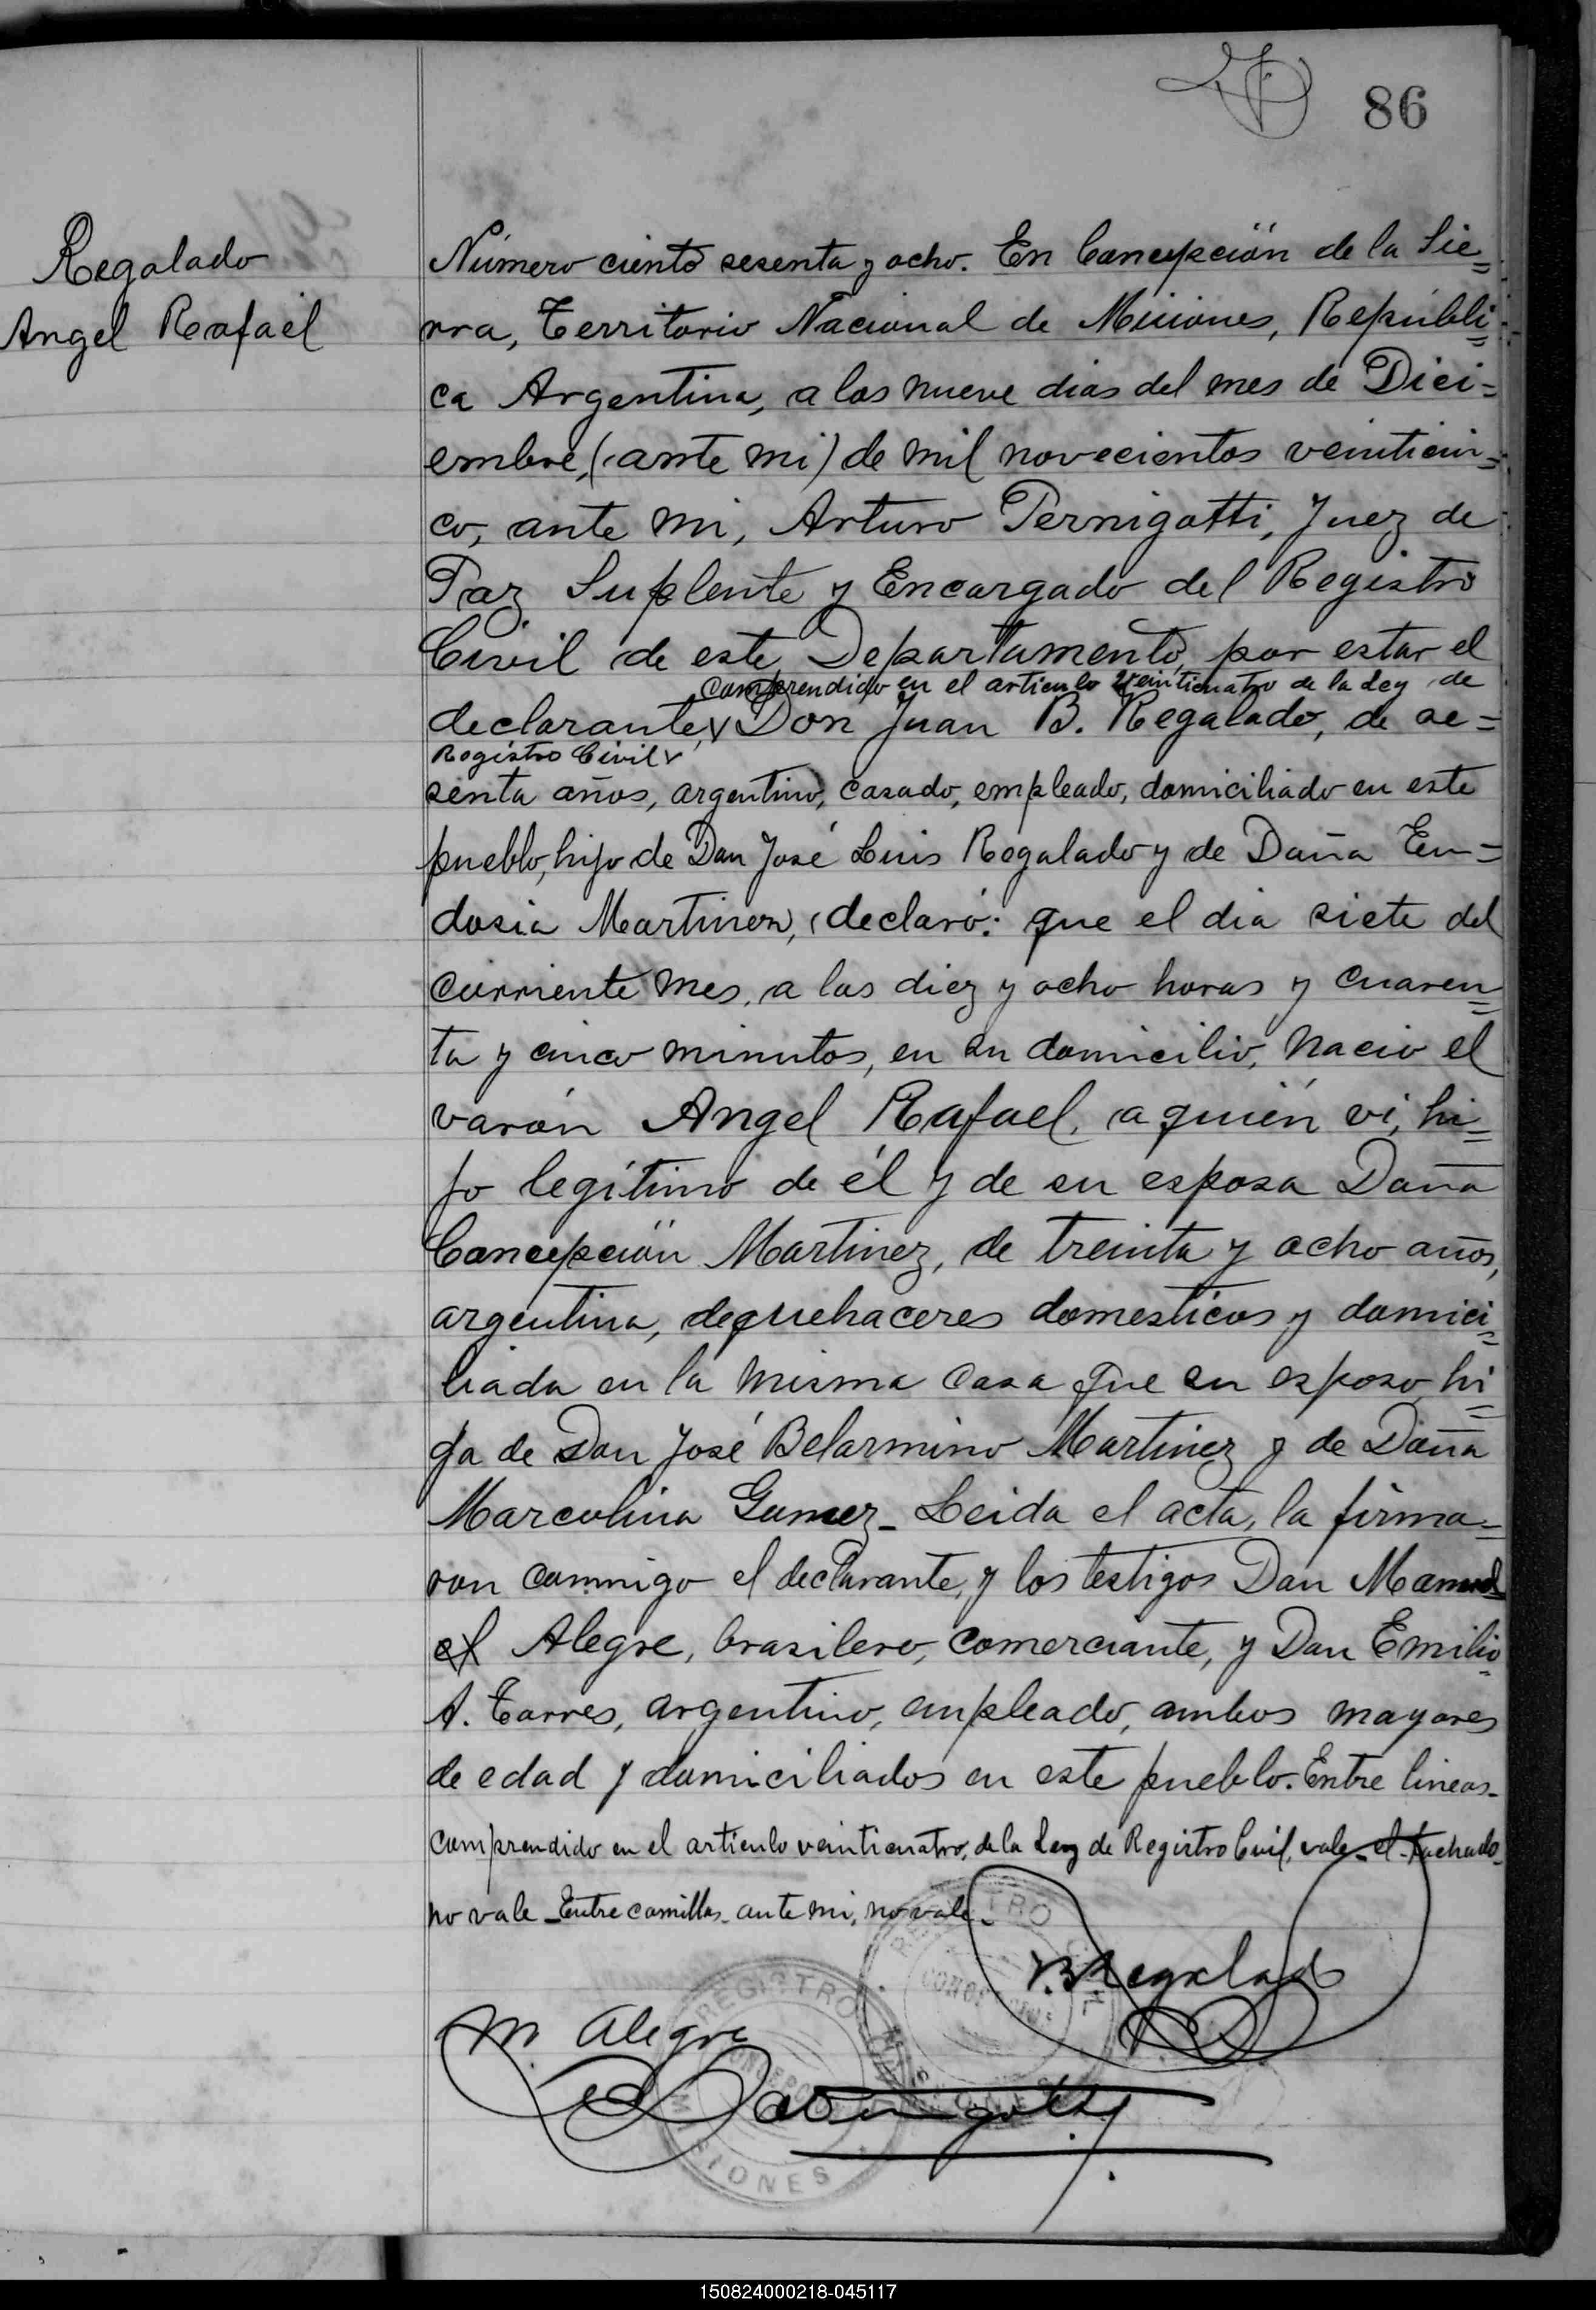 86
Regalado
Angel Rafael
Número ciento sesenta y ocho. En Concepción de la Sie=
rra, Territorio Nacional de Misiones, Repúbli=
ca Argentina, a los nueve dias del mes de Dici=
embre, (ante mi) de mil novecientos veinticin=
co, ante mi, Arturo Pernigotti, Juez de
Paz Suplente y Encargado del Registro
Civil de este Departamento, por estar el
comprendido en el articulo veinticuatro de la Ley de
declarante, Don Juan B. Regalado, de se=
Registro Civil
senta años, argentino, casado, empleado, domiciliado en este
pueblo, hijo de Don José Luis Regalado y de Doña Eu=
dosia Martinez, declaró: que el dia siete del
corriente mes, a las diez y ocho horas y cuaren=
ta y cinco minutos, en su domicilio, nacio el
varón Angel Rafael, a quién vi, hi=
jo legítimo de él y de su esposa Doña
Concepción Martinez, de treinta y ocho años,
argentina, de quehaceres domesticos y domici=
liada en la misma casa que su esposo, hi=
ja de Don José Belarmino Martinez y de Doña
Marcolina Gomez_ Leida el acta, la firma=
ron conmigo el declarante, y los testigos Don Manuel
el Alegre, brasilero, comerciante, y Don Emilio
A. Torres, argentino, empleado, ambos mayores
de edad y domiciliados en este pueblo. Entre lineas_
comprendido en el articulo veinticuatro, de la Ley de Registro Civil, vale_ el_ tachado_
no vale_ Entre comillas_ ante mi, no vale_
REGISTRO CIVIL
MISIONES
J. B. Regalado
M. Alegre
REGISTRO
MISIONES
150824000218-045117